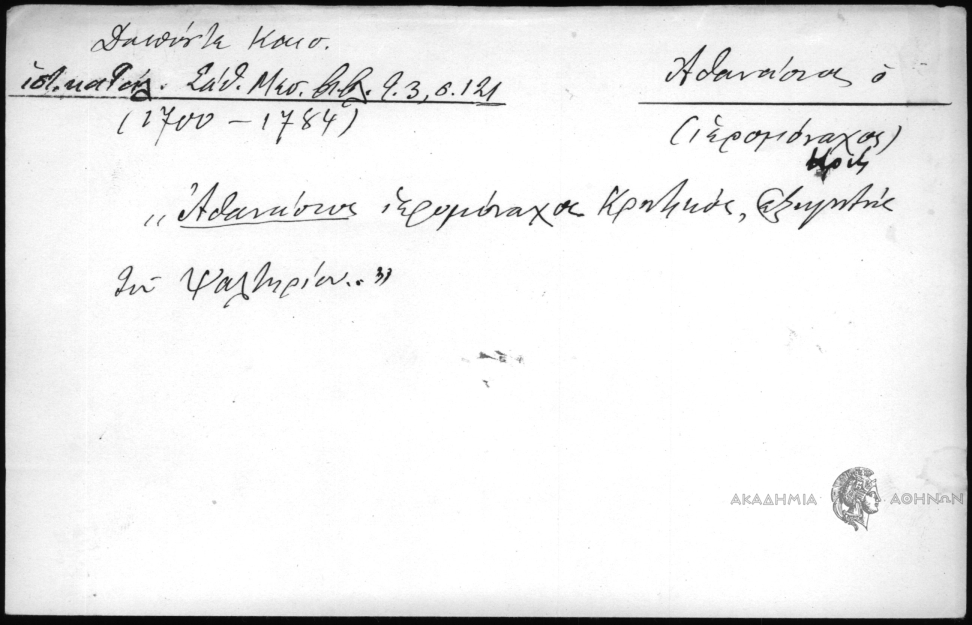 Δαπόντε Καισ.
ἱστ. κατάλ. Σάθ. Μεσ. βιβλ. τ. 3, σ. 121
(1700 – 1784)
Ἀθανάσιος ὁ
(ἱερομόναχος)
Κρὴς
"Ἀθανάσιος ἱερομόναχος Κρητικός, ἐξηγητής
τοῦ Ψαλτηρίου.."
ΑΚΑΔΗΜΙΑ ΑΘΗΝΩΝ